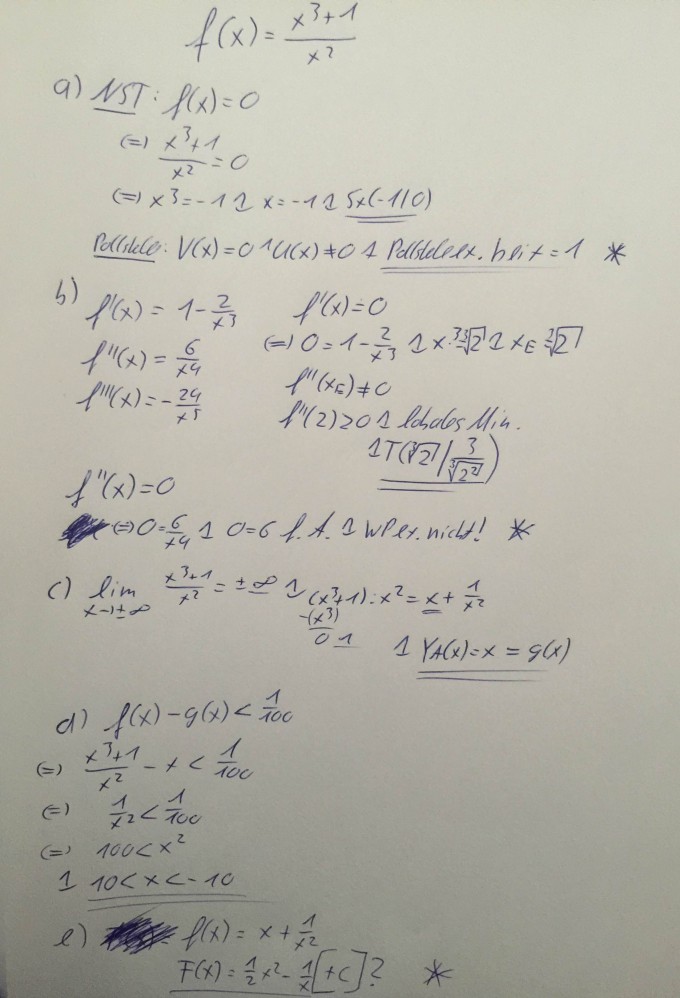 f(x) = (x³+1)/x²
a) NST: f(x) = 0
(=) (x³+1)/x² = 0
(=) x³ = -1 1 x = -1 1 Sx(-1|0)
Polstelle: V(x) = 0 ∧ U(x) ≠ 0 1 Polstelle ex. bei x = 1 *
b) f'(x) = 1 - 2/x³
f''(x) = 6/x⁴
f'''(x) = -24/x⁵
f'(x) = 0
(=) 0 = 1 - 2/x³ 1 x = ³√2 1 x_E = ³√2
f''(x_E) ≠ 0
f''(2) > 0 1 lokales Min.
1 T(³√2 | 3/³√2²)
f''(x) = 0
(=) 0 = 6/x⁴ 1 0 = 6 f.A. 1 WP ex. nicht! *
c) lim x→±∞ (x³+1)/x² = ±∞ 1 (x³+1) : x² = x + 1/x²
-(x³)
0 1
1 Y_A(x) = x = g(x)
d) f(x) - g(x) < 1/100
(=) (x³+1)/x² - x < 1/100
(=) 1/x² < 1/100
(=) 100 < x²
1 10 < x < -10
e) f(x) = x + 1/x²
F(x) = 1/2 x² - 1/x [+c] ? *